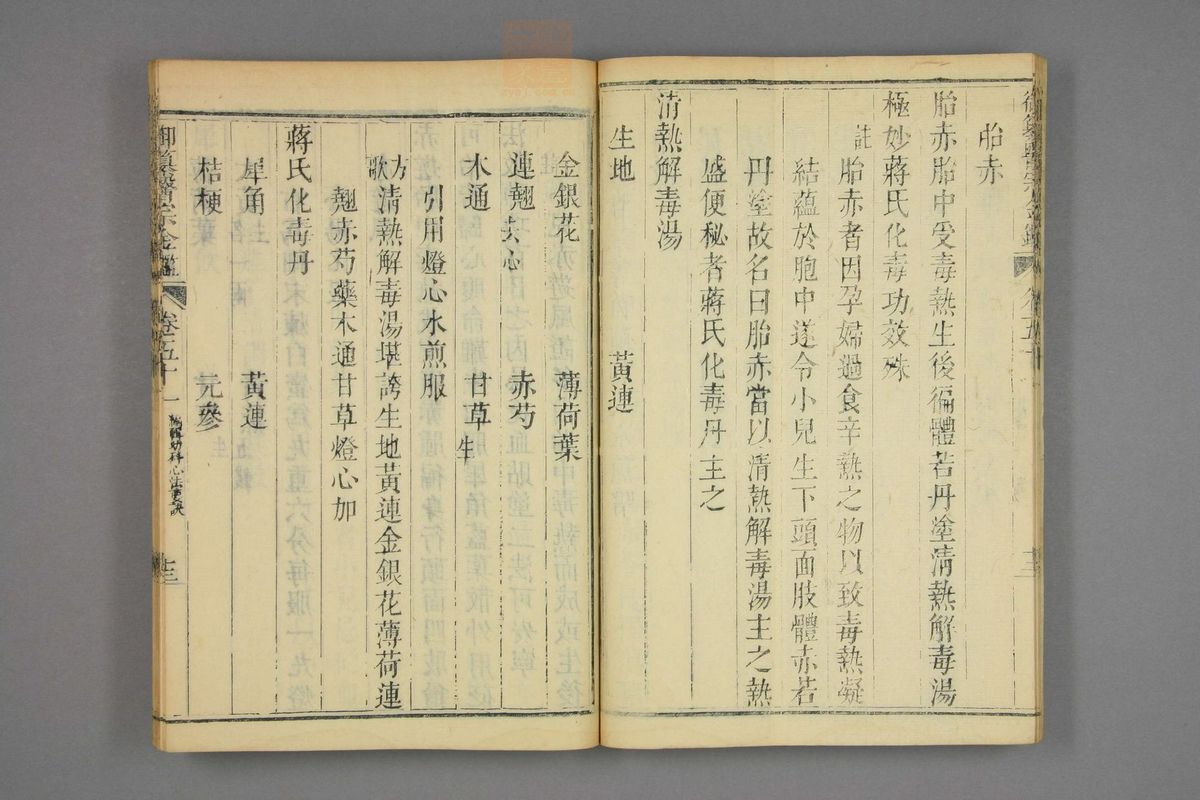 胎赤
胎赤胎中受毒熱生後徧體若丹塗清熱解毒湯
極妙蔣氏化毒功效殊
註
胎赤者因孕婦過食辛熱之物以致毒熱凝
結蘊於胞中遂令小兒生下頭面肢體赤若
丹塗故名曰胎赤當以清熱解毒湯主之熱
盛便秘者蔣氏化毒丹主之
清熱解毒湯
生地 黃連
金銀花 薄荷葉
連翹去心 赤芍
木通 甘草生
引用燈心水煎服
方歌
清熱解毒湯堪誇生地黃連金銀花薄荷連
翹赤芍藥木通甘草燈心加
蔣氏化毒丹
犀角 黃連
桔梗 元參
御纂醫宗金鑑 卷五十一 編輯幼科心法要訣